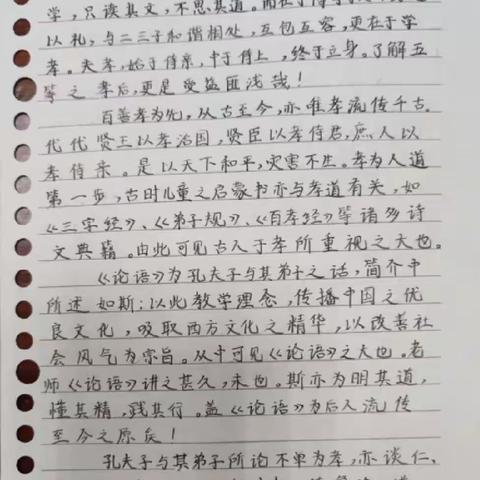 学，只读其文，不思其道。而在于
以礼，与二三子和谐相处，互包互容，更在于学
孝。夫孝，始于侍亲，中于侍上，终于立身。了解五
等之孝后，更是受益匪浅哉！
百善孝为先，从古至今，亦唯孝流传千古。
代代贤王以孝治国，贤臣以孝侍君，庶人以
孝侍亲。是以天下和平，灾害不生。孝为人道
第一步，古时儿童之启蒙书亦与孝道有关，如
《三字经》、《弟子规》、《百孝经》等诸多诗
文典籍。由此可见古人于孝所重视之大也。
《论语》为孔夫子与其弟子之话，简介中
所述如斯：以此教学理念，传播中国之优
良文化，吸取西方文化之精华，以改善社
会风气为宗旨。从中可见《论语》之大也。老
师《论语》讲之甚久，未也。斯亦为明其道，
懂其精，践其行。盖《论语》为后人流传
至今之原矣！
孔夫子与其弟子所论不单为孝，亦谈仁、